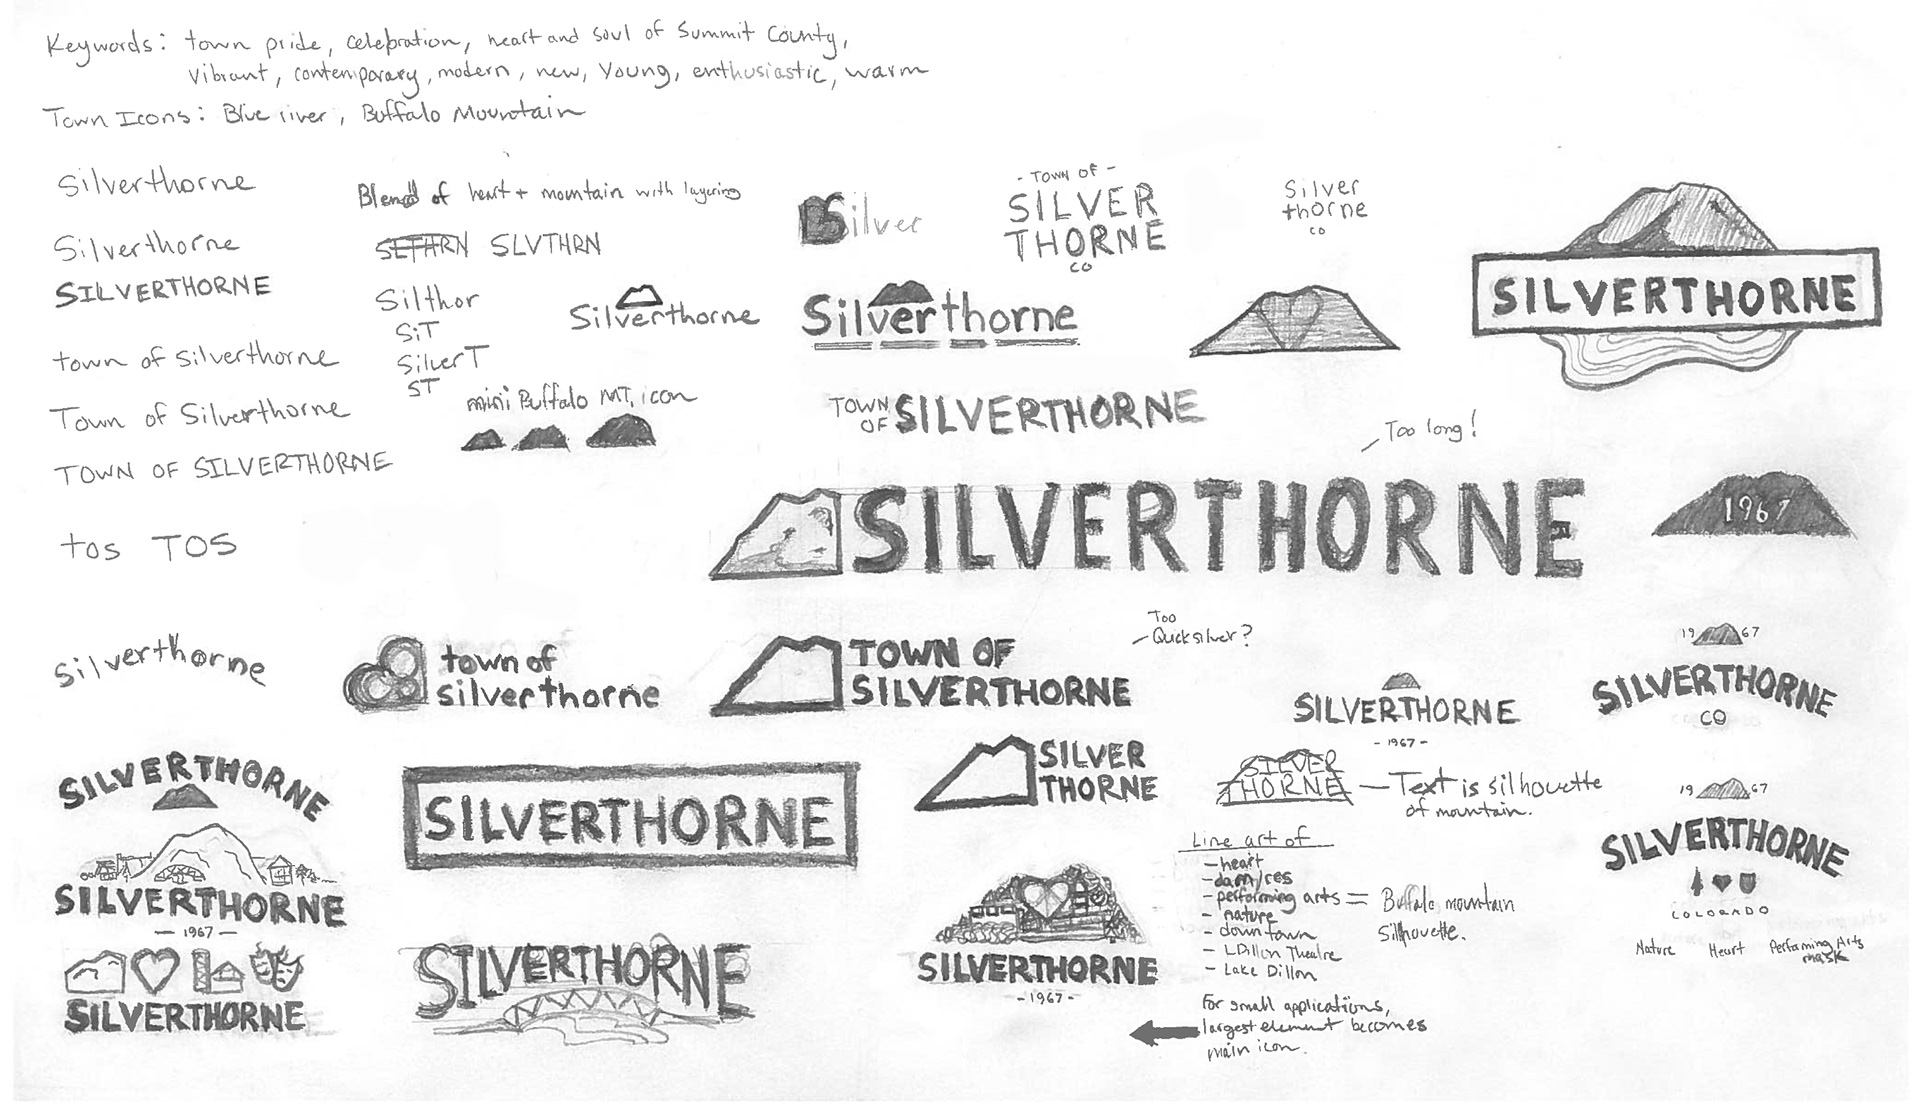 Keywords: town pride, celebration, heart and soul of Summit County,
vibrant, contemporary, modern, new, young, enthusiastic, warm
Town Icons: Blue river, Buffalo Mountain
Silverthorne
Silverthorne
SILVERTHORNE
town of silverthorne
Town of Silverthorne
TOWN OF SILVERTHORNE
tos TOS
Blend of heart + mountain with layering
SLVTHRN
Silthor
SiT
SilverT
ST
mini Buffalo MT, icon
Silverthorne
Silver
Silverthorne
- TOWN OF -
SILVER
THORNE
CO
Silver
thorne
CO
SILVERTHORNE
TOWN
OF SILVERTHORNE
Too long!
SILVERTHORNE
1967
silverthorne
town of
silverthorne
TOWN OF
SILVERTHORNE
Too
Quicksilver?
SILVERTHORNE
- 1967 -
19 67
SILVERTHORNE
CO
SILVERTHORNE
SILVERTHORNE
SILVER
THORNE
SILVER
THORNE
Text is silhouette
of mountain.
19 67
SILVERTHORNE
COLORADO
Nature Heart Performing Arts
mask
SILVERTHORNE
- 1967 -
SILVERTHORNE
SILVERTHORNE
SILVERTHORNE
- 1967 -
Line art of
- heart
- dam/res
- performing arts = Buffalo mountain
silhouette.
- nature
- downtown
- LDillon Theatre
- Lake Dillon
For small applications,
largest element becomes
main icon.